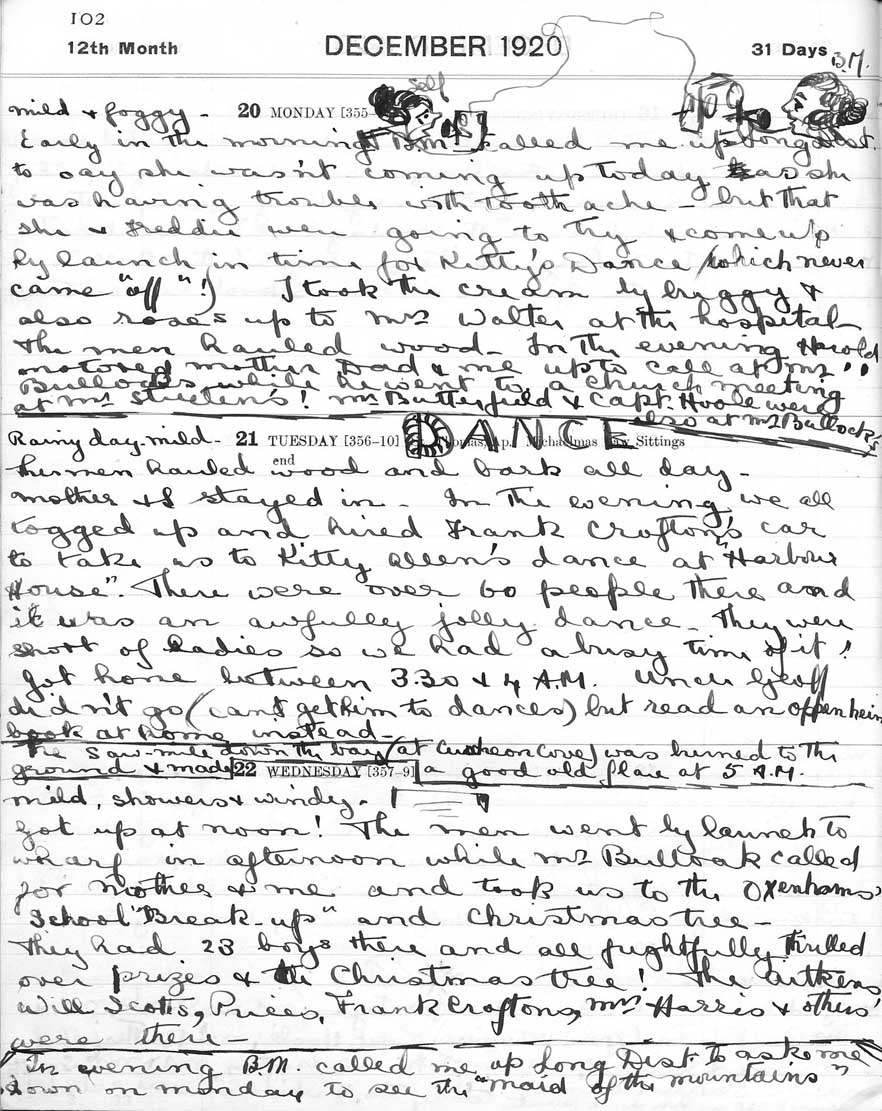 102
12th Month DECEMBER 1920 31 Days
B.M.
Self
mild & foggy - 20 MONDAY [355
Early in the morning B.M. called me up Long Dist.
to say she wasn't coming up today as she
was having trouble with tooth ache - but that
she & Freddie were going to try & come up
by launch in time for Kitty's Dance (which never
came "off"!) I took the cream by buggy &
also roses up to Mrs Walter at the hospital
The men hauled wood - In the evening Harold
motored mother Dad & me up to call at Mr
Bullocks while he went to a church meeting
at Mr ! Mr Butterfield & Capt. Hoole were
also at Mr Bullock's
DANCE
Rainy day - mild - 21 TUESDAY [356-10] Thomas, Ap. Michaelmas Law Sittings
end
The men hauled wood and bark all day -
mother & I stayed in - In the evening we all
togged up and hired Frank Crofton's car
to take us to Kitty Allen's dance at "Harbour
House". There were over 60 people there and
it was an awfully jolly dance - They were
short of ladies so we had a busy time of it!
Got home between 3.30 & 4 A.M. Uncle Geoff
didn't go (can't get him to dances) but read an Oppenheim
book at home instead -
The saw-mill down the bay (at Cusheon Cove) was burned to the
ground & made a good old flare at 5 A.M.
22 WEDNESDAY [357-9]
mild, showers & windy -
Got up at noon! The men went by launch to
wharf in afternoon while Mr Bullock called
for Mother & me and took us to the Oxenhams'
School "Break-up" and Christmas tree -
They had 23 boys there and all frightfully thrilled
over prizes & the Christmas tree! The Aitkens
Will Scotts, Prices, Frank Croftons, Mrs Harris & others
were there -
In evening B.M. called me up Long Dist. to ask me
down on monday to see the "maid of the mountains"